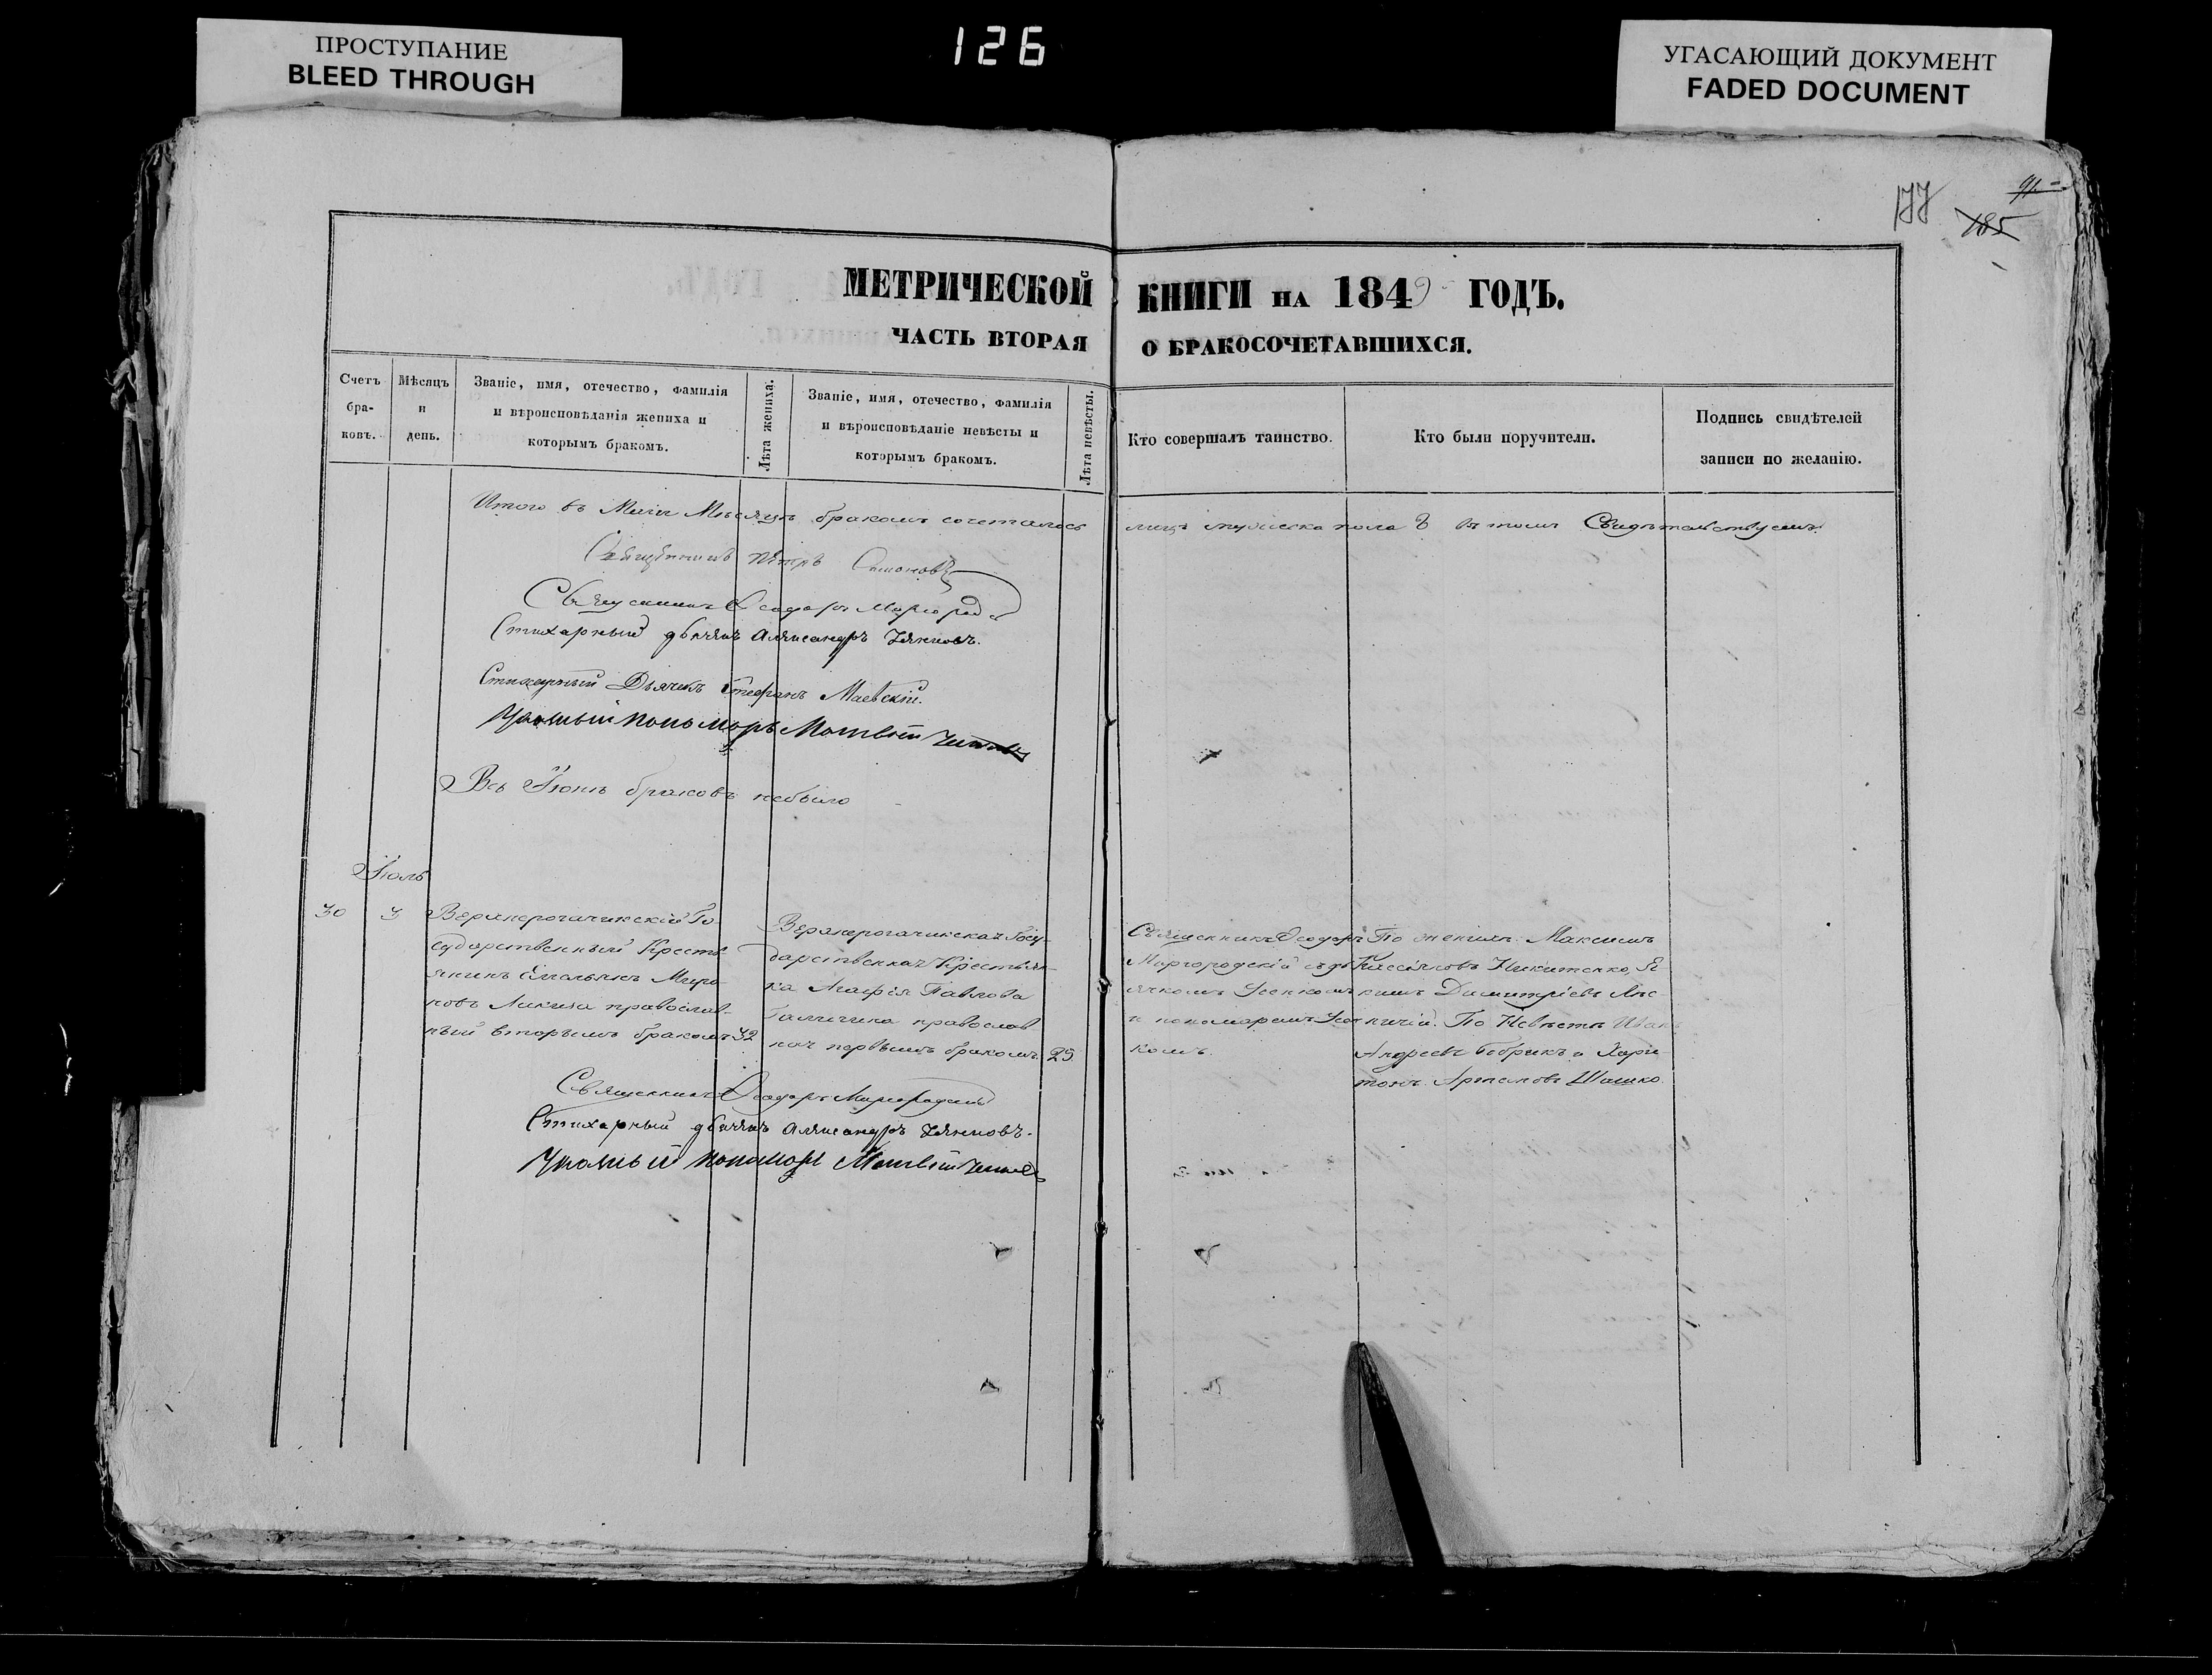 ПРОСТУПАНИЕ
BLEED THROUGH
126
УГАСАЮЩИЙ ДОКУМЕНТ
FADED DOCUMENT
91
177 185
МЕТРИЧЕСКОЙ КНИГИ НА 1849 ГОДЪ.
ЧАСТЬ ВТОРАЯ О БРАКОСОЧЕТАВШИХСЯ.
Счетъ
бра-
ковъ.
Мѣсяцъ
и
день.
Званіе, имя, отечество, фамилія
и вѣроисповѣданія жениха и
которымъ бракомъ.
Лѣта жениха.
Званіе, имя, отечество, фамилія
и вѣроисповѣданіе невѣсты и
которымъ бракомъ.
Лѣта невѣсты.
Кто совершалъ таинство.
Кто были поручители.
Подпись свидѣтелей
записи по желанію.
Итого въ Маіи Мѣсяцѣ бракомъ сочеталось лицъ мужеска пола въ томъ Свидѣтельствуемъ
Священникъ Петръ
Священникъ Ѳеодоръ Миргород
Стихарный дьячекъ Александръ
Стихарный Дьячекъ Стефанъ Маевскій.
Указный пономарь Матвѣй
Въ Іюнѣ браковъ небыло
Іюль
30
3
Верхнерогачикскій Го-
сударственный Кресть-
янинъ Емельянъ Миро-
новъ Ликина православ-
ный вторымъ бракомъ
32
Верхнерогачикская Госу-
дарственная Крестьян-
ка Агафія Павлова
православ-
ная первымъ бракомъ.
25
Священникъ Ѳеодоръ
Миргородскій съ дь-
ячкомъ
и пономаремъ
комъ.
По женихѣ: Максимъ
Кассіяновъ Никитенко, Я-
кимъ Димитріевъ Лис-
ничій. По Невѣстѣ Иванъ
Андреевъ Бобрикъ и Хари-
тонъ Артемовъ Шашко.
Священникъ Ѳеодоръ Миргородскій
Стихарный дьячекъ Александръ
Указный пономарь Матвѣй